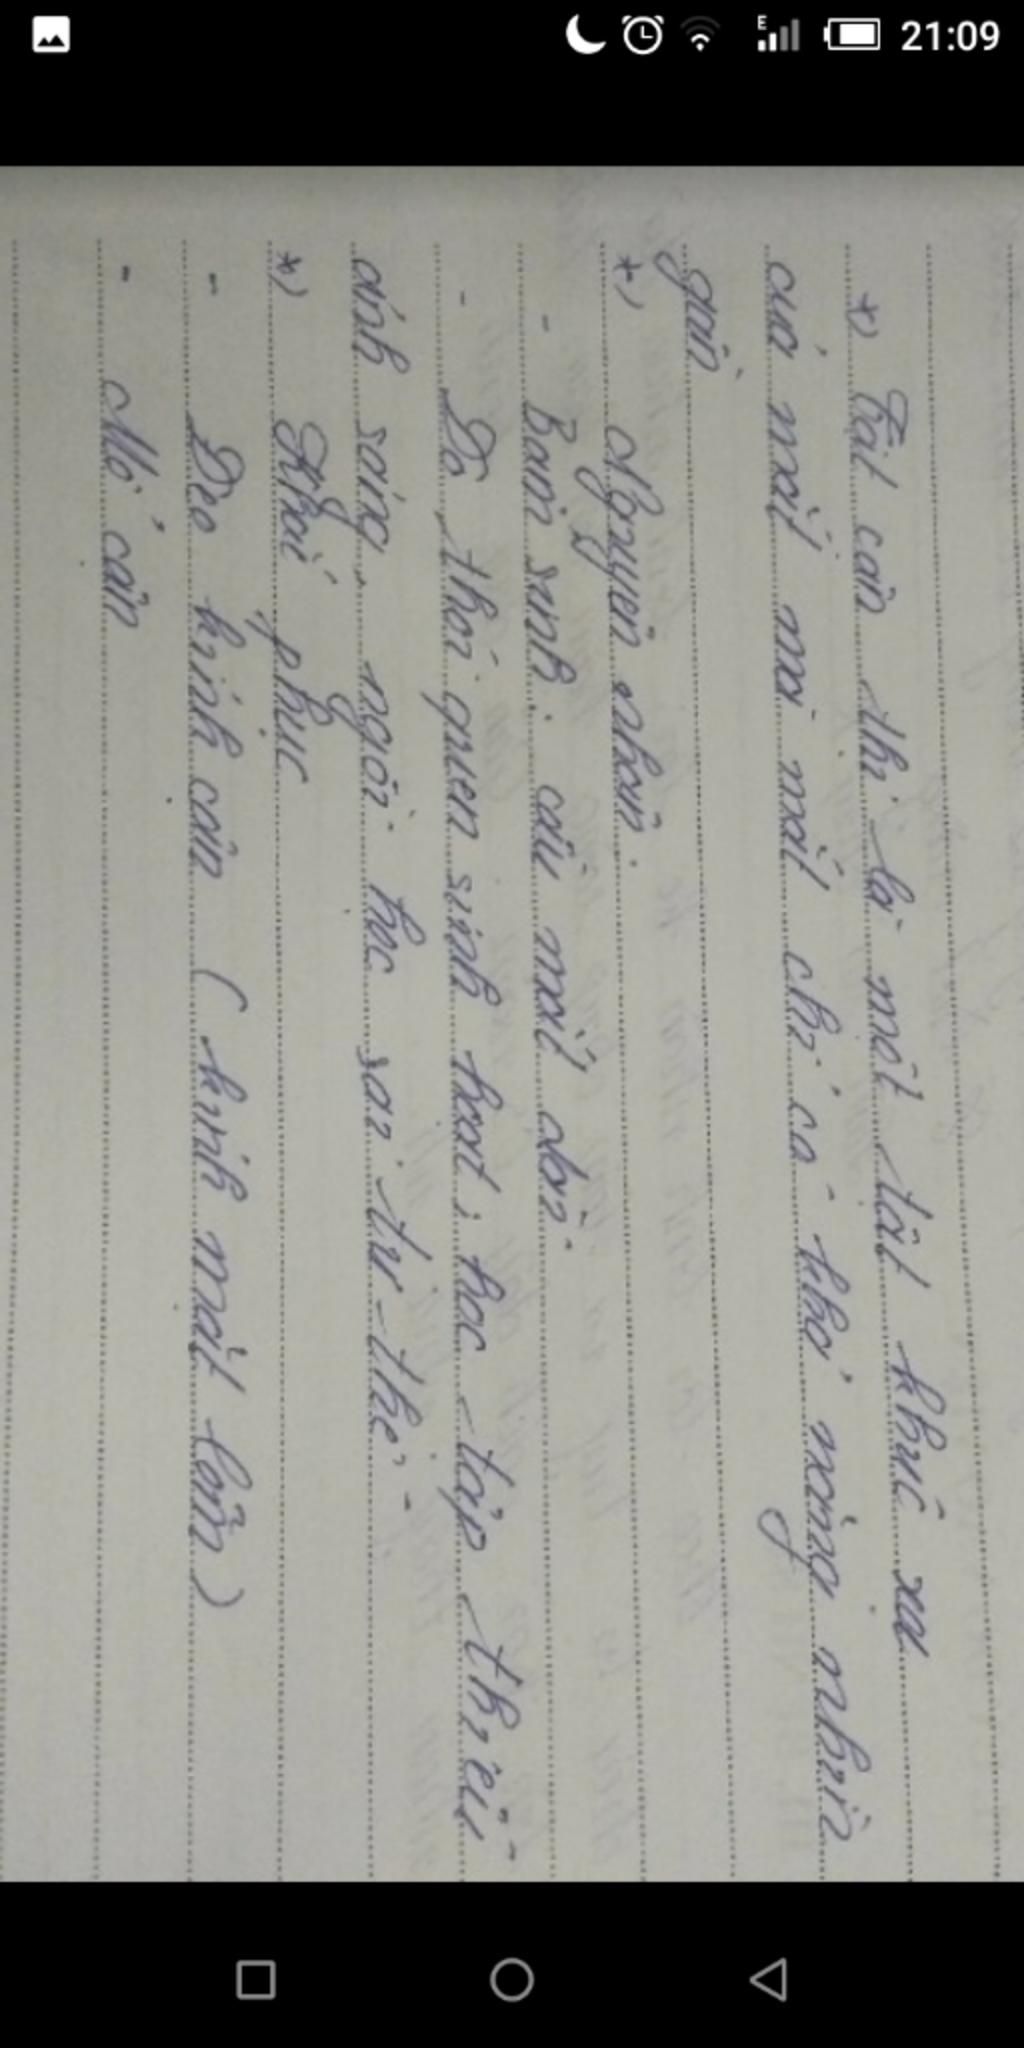 21:09
*) Tật cận thị là một tật khúc xạ
của mắt mà mắt chỉ có khả năng nhìn
gần
*) Nguyên nhân.
- Bẩm sinh: cầu mắt dài.
- Do thói quen sinh hoạt, học tập thiếu
ánh sáng, ngồi học sai tư thế.
*) Khắc phục
- Đeo kính cận (kính mắt lõm)
- Mổ cận